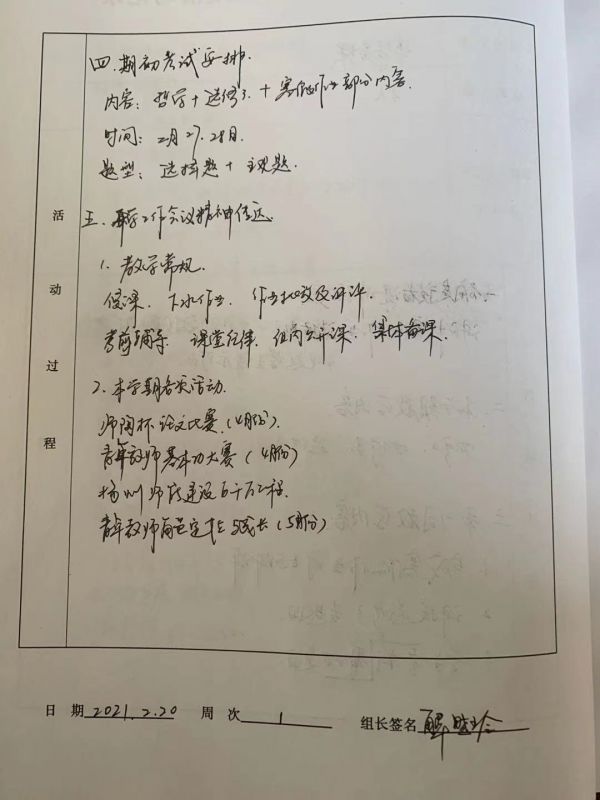 四.期初考试安排.
内容: 哲学+选修3.+寒假作业部分内容.
时间: 2月27.28日.
题型: 选择题+主观题.
五.教学工作会议精神传达.
1.教学常规.
侯课. 下水作业. 作业批改及讲评.
考前辅导. 课堂纪律. 组内公开课. 集体备课.
2.本学期各项活动.
师陶杯论文比赛.(4月份).
青年教师基本功大赛(4月份)
扬州师资建设百千万工程.
青年教师角色定位与成长(5月份)
活动过程
日 期 2021.2.20 周 次 1 组长签名